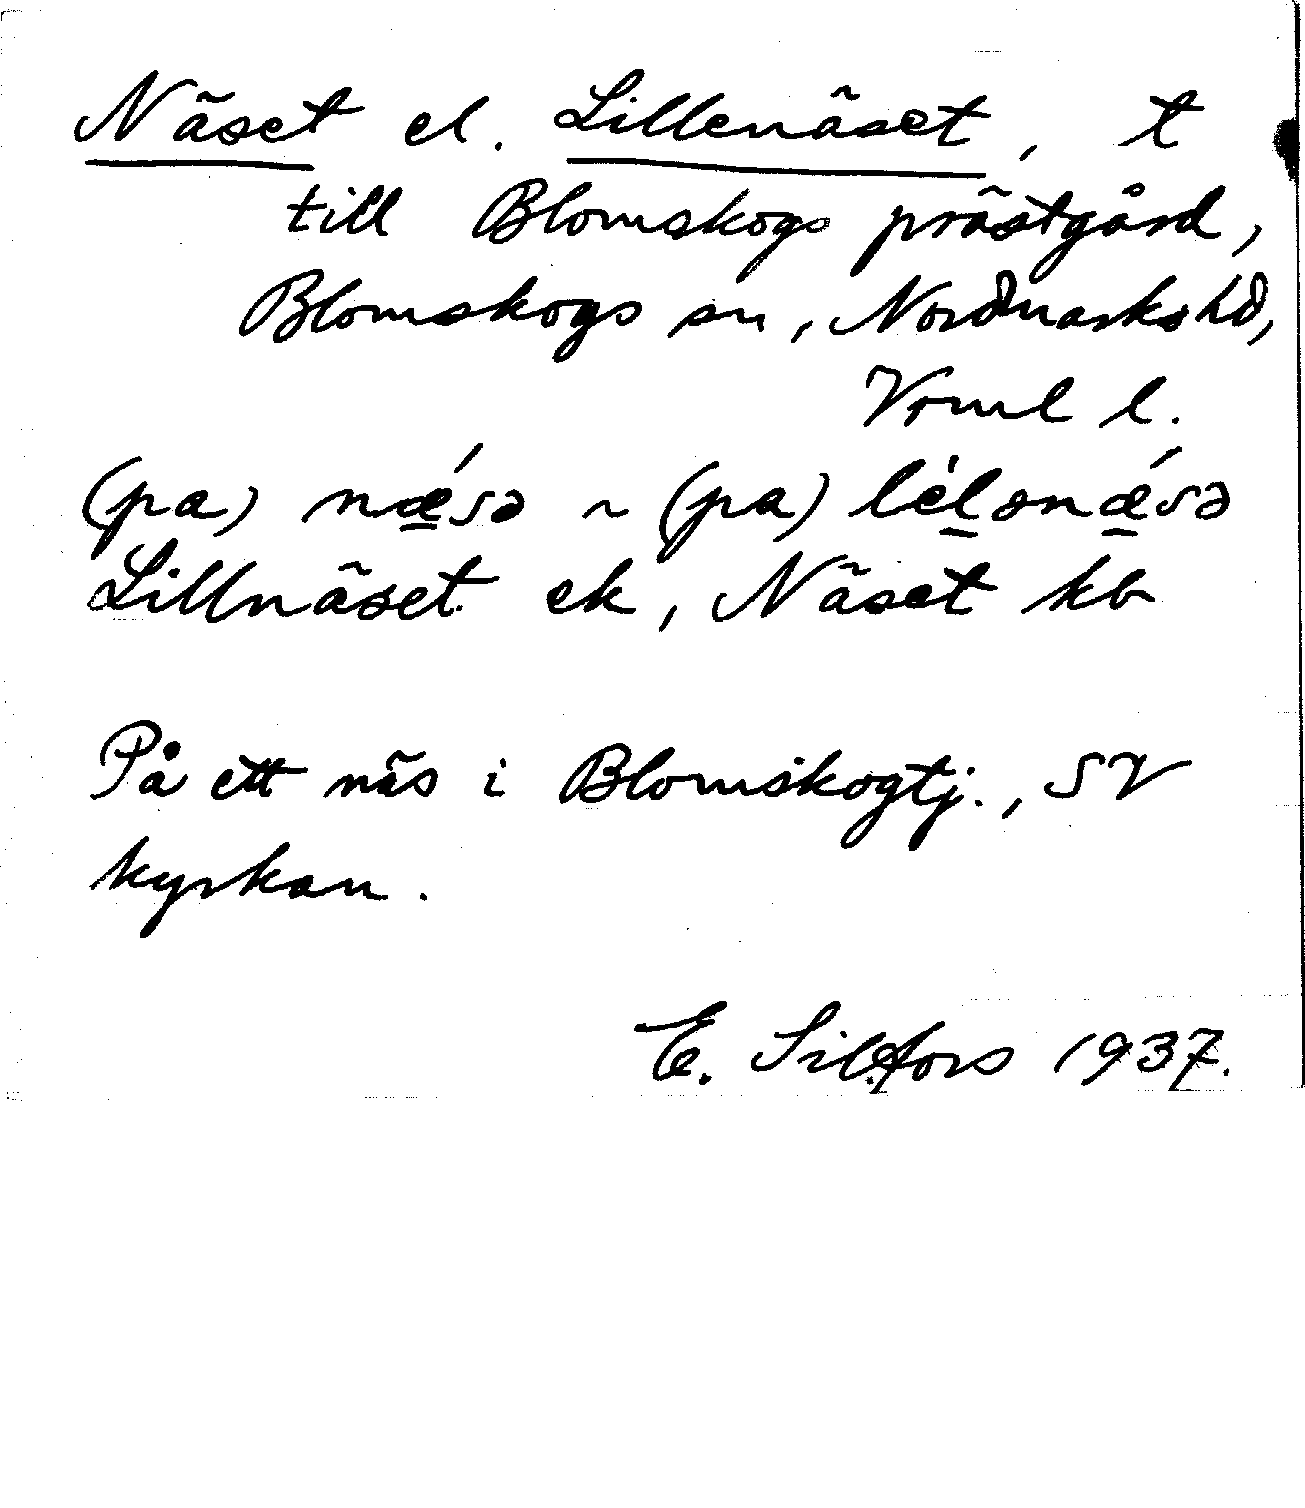 Näset el. Lillenäset, t
till Blomskogs prästgård,
Blomskogs sn, Nordmarks hd,
Vrml l.
(pa) nǽ̠sə ~ (pa) lèl̠ənǽ̠sə
Lillnäset ek, Näset kb
På ett näs i Blomskogtj., SV
kyrkan.
E. Silfors 1937.